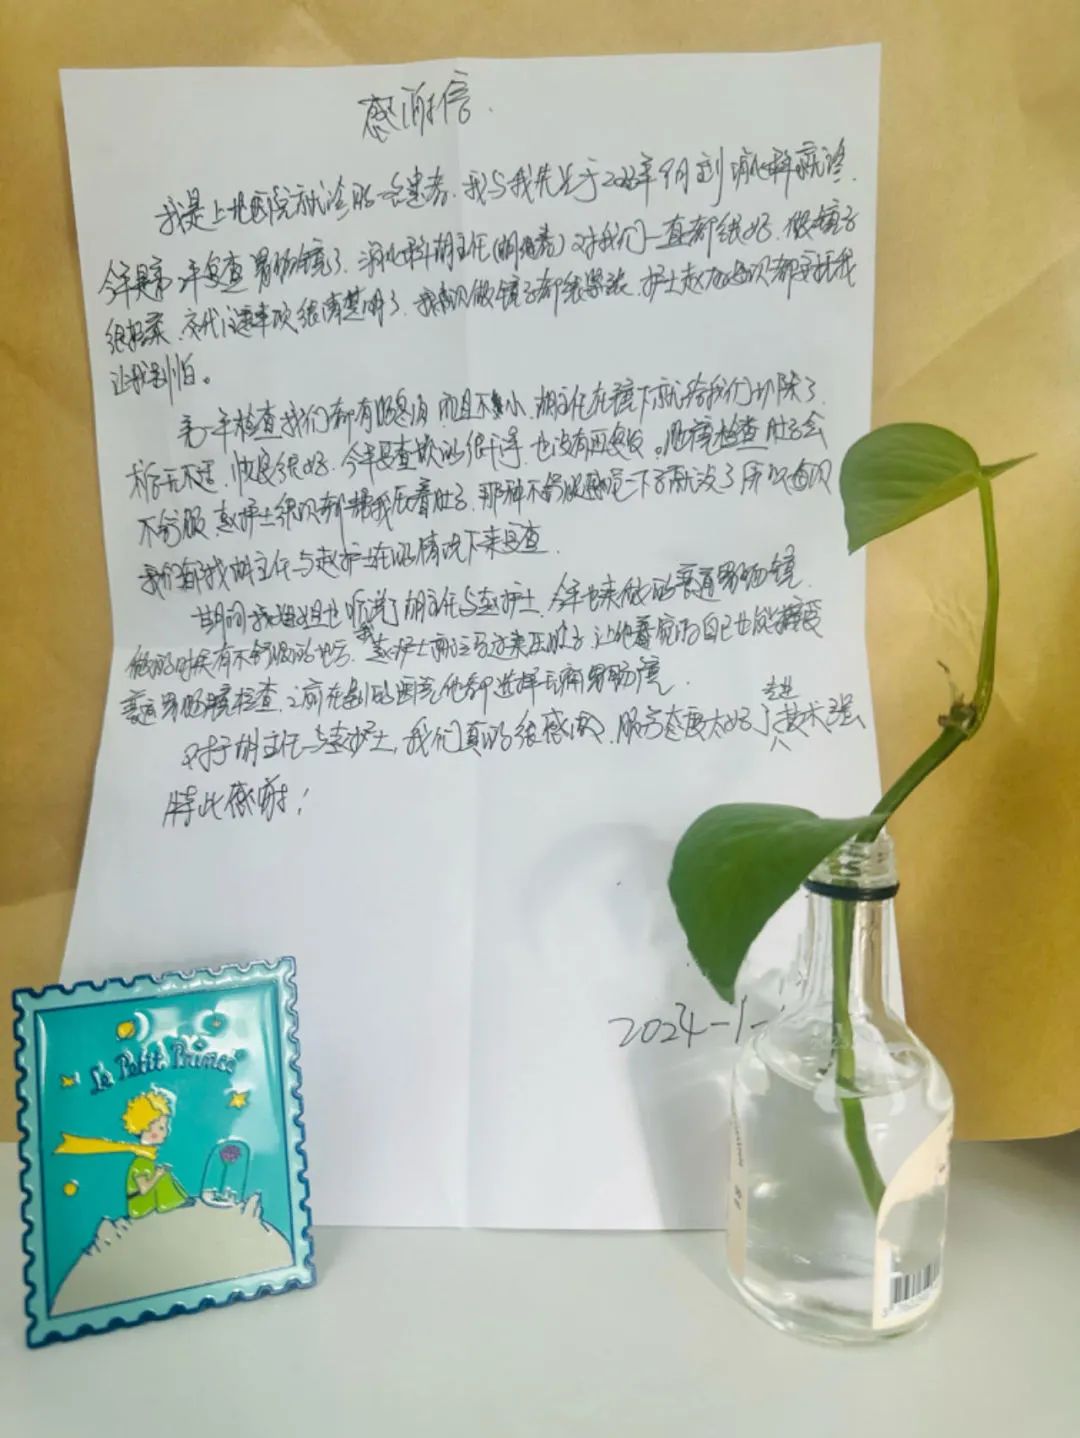 感谢信.
我是上地医院就诊的一名患者.我与我先生于2023年9月到消化科就诊.
今年是第二年复查胃肠镜了.消化科胡主任()对我们一直都很好.做镜子
很轻柔.交代注意事项很清楚明了.我每次做镜子都很紧张.护士赵每次都安抚我
让我别怕。
第一年检查我们都有息肉而且不小.胡主任在镜下就给我们切除了
术后无不适.恢复很好.今年复查做的很干净.也没有再复发。肠镜检查肚子会
不舒服.赵护士每次都帮我压着肚子.那种不舒服感觉一下子就没了所以每次
我们都找胡主任与赵护士在的情况下来复查.
期间我姐姐也听说了胡主任与赵护士.今年也来做的普通胃肠镜.
做的时候有不舒服的地方.赵护士就立马过来压肚子.让她觉得自己也能接受
普通胃肠镜检查.之前在别的医院她都选择无痛胃肠镜.
对于胡主任与赵护士,我们真的很感谢.服务态度太好了技术强
特此感谢!
2024-1-
Le Petit Prince